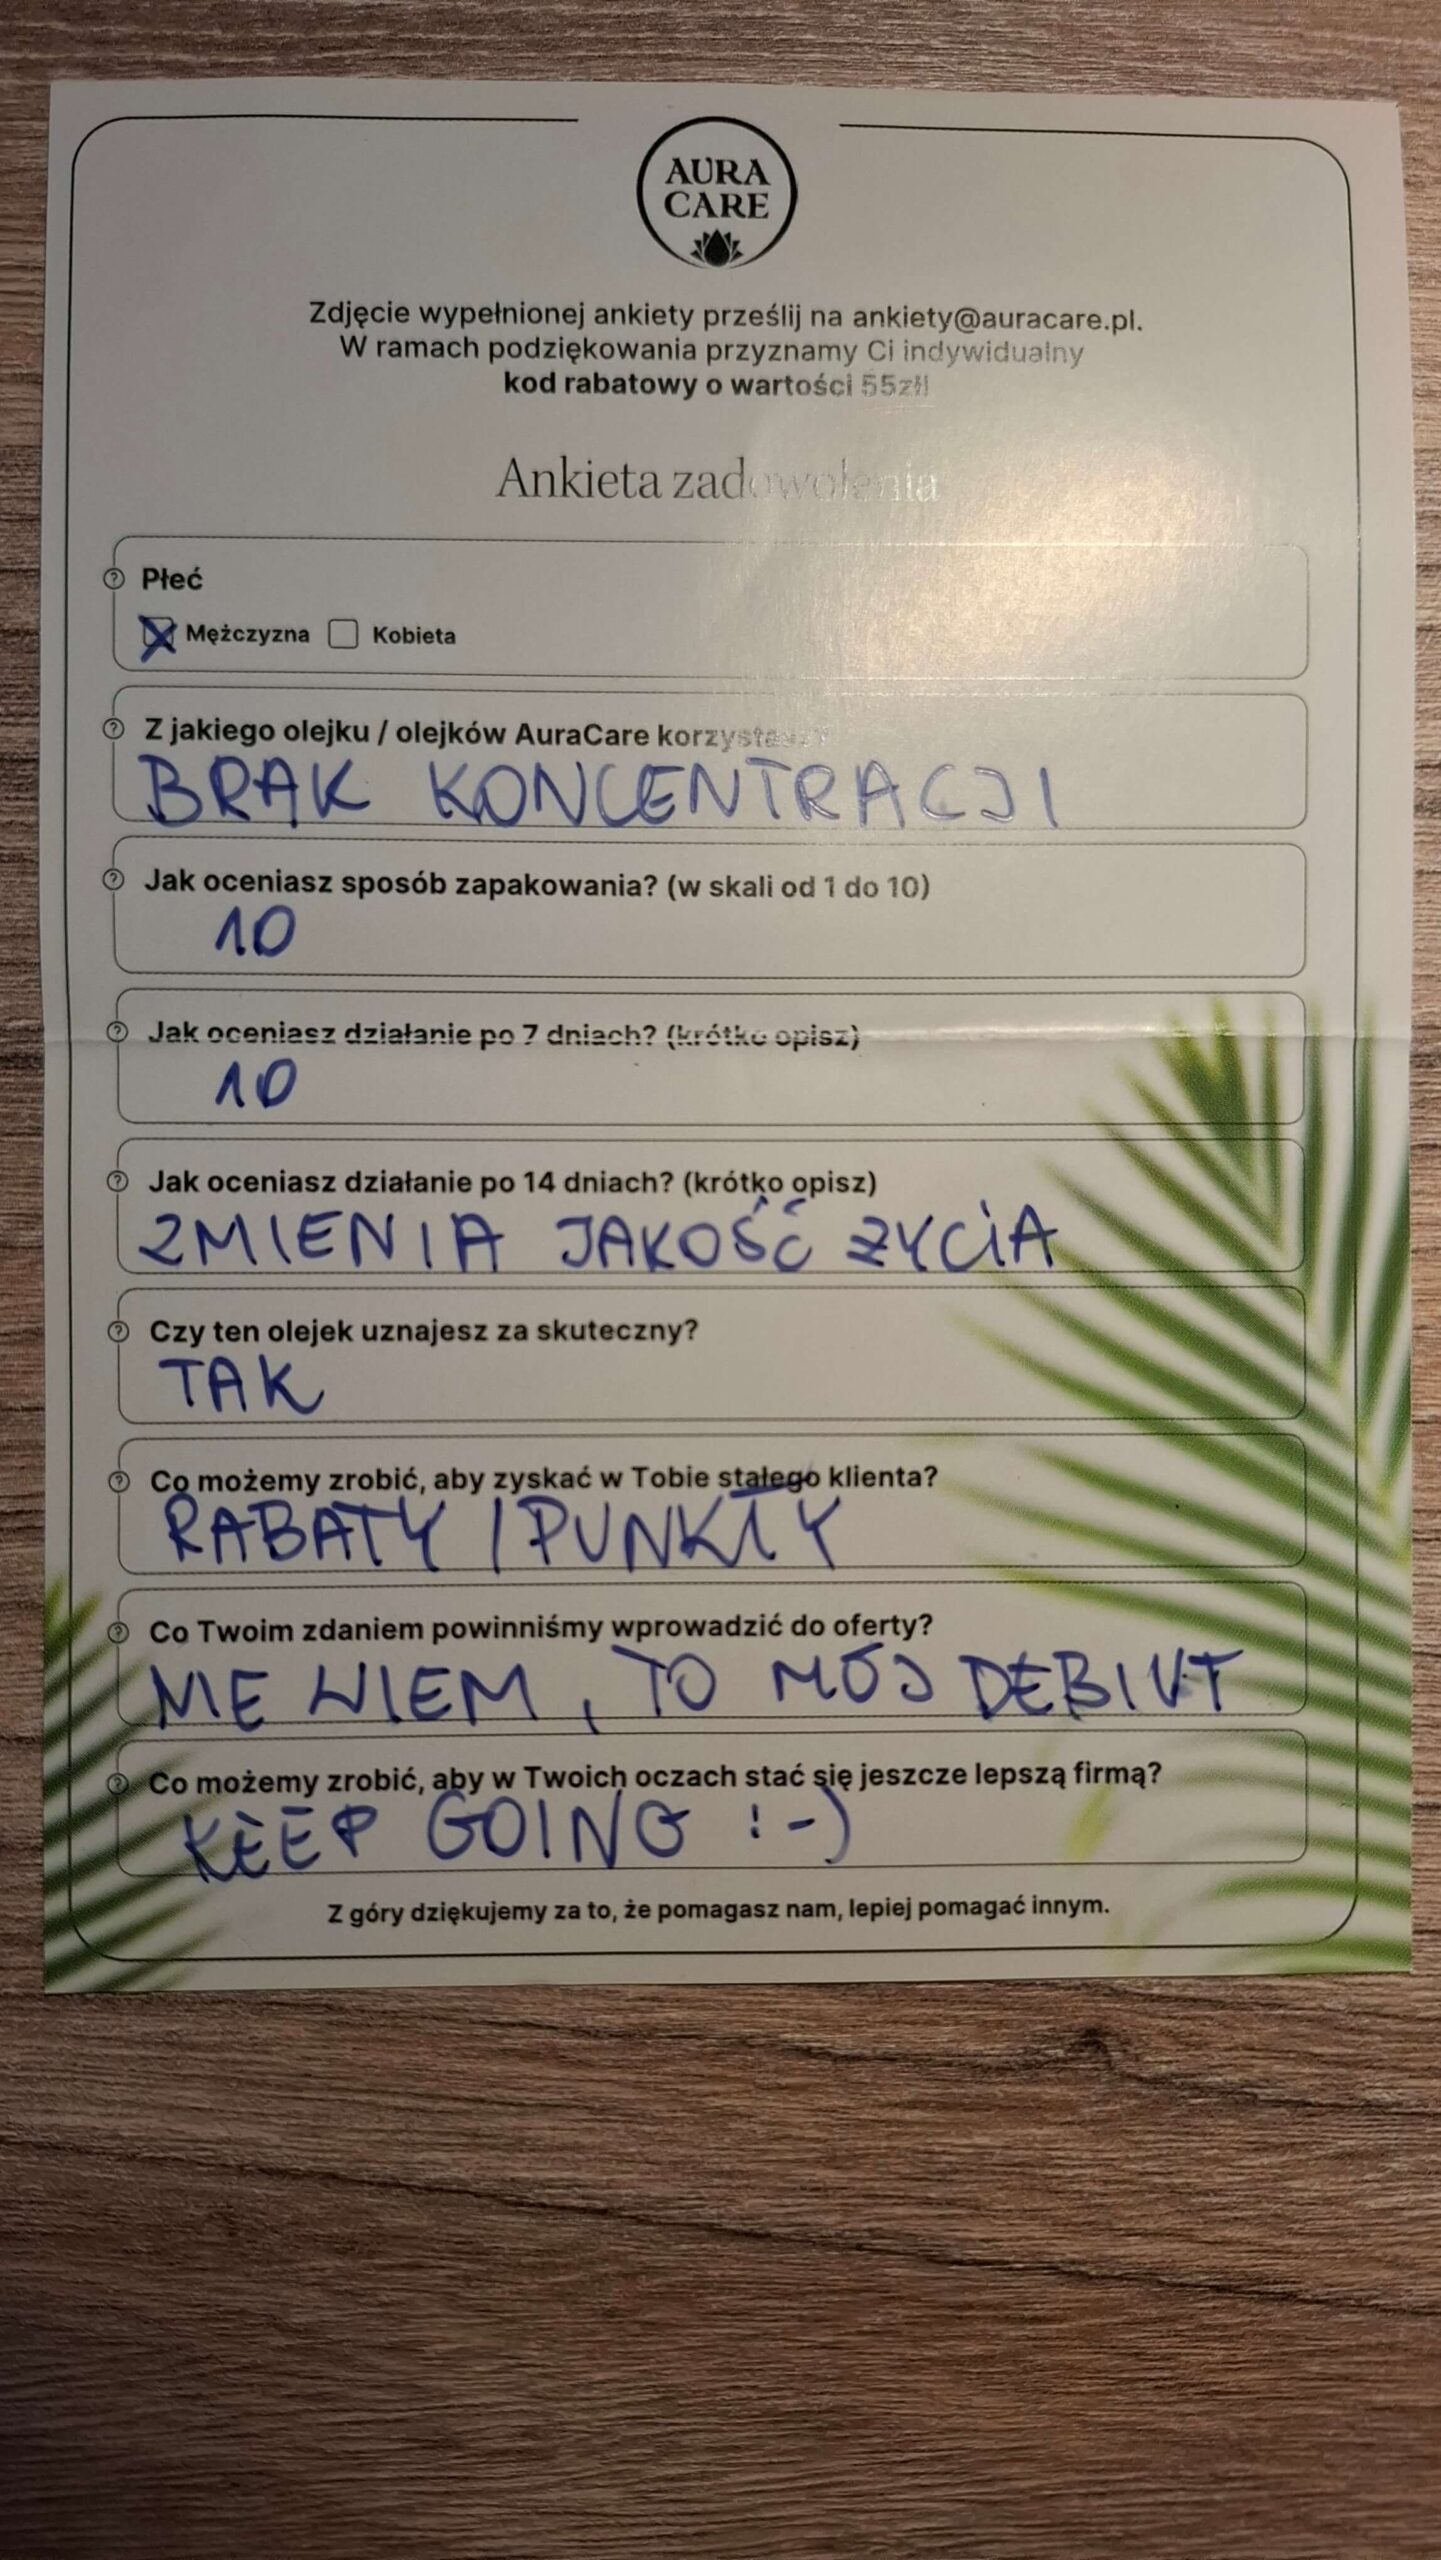 AURA
CARE
Zdjęcie wypełnionej ankiety prześlij na ankiety@auracare.pl.
W ramach podziękowania przyznamy Ci indywidualny
kod rabatowy o wartości 55zł!
Ankieta zadowolenia
Płeć
Mężczyzna Kobieta
Z jakiego olejku / olejków AuraCare korzystasz?
BRAK KONCENTRACJI
Jak oceniasz sposób zapakowania? (w skali od 1 do 10)
10
Jak oceniasz działanie po 7 dniach? (krótko opisz)
10
Jak oceniasz działanie po 14 dniach? (krótko opisz)
ZMIENIA JAKOŚĆ ŻYCIA
Czy ten olejek uznajesz za skuteczny?
TAK
Co możemy zrobić, aby zyskać w Tobie stałego klienta?
RABATY / PUNKTY
Co Twoim zdaniem powinniśmy wprowadzić do oferty?
NIE WIEM, TO MÓJ DEBIUT
Co możemy zrobić, aby w Twoich oczach stać się jeszcze lepszą firmą?
KEEP GOING :-)
Z góry dziękujemy za to, że pomagasz nam, lepiej pomagać innym.